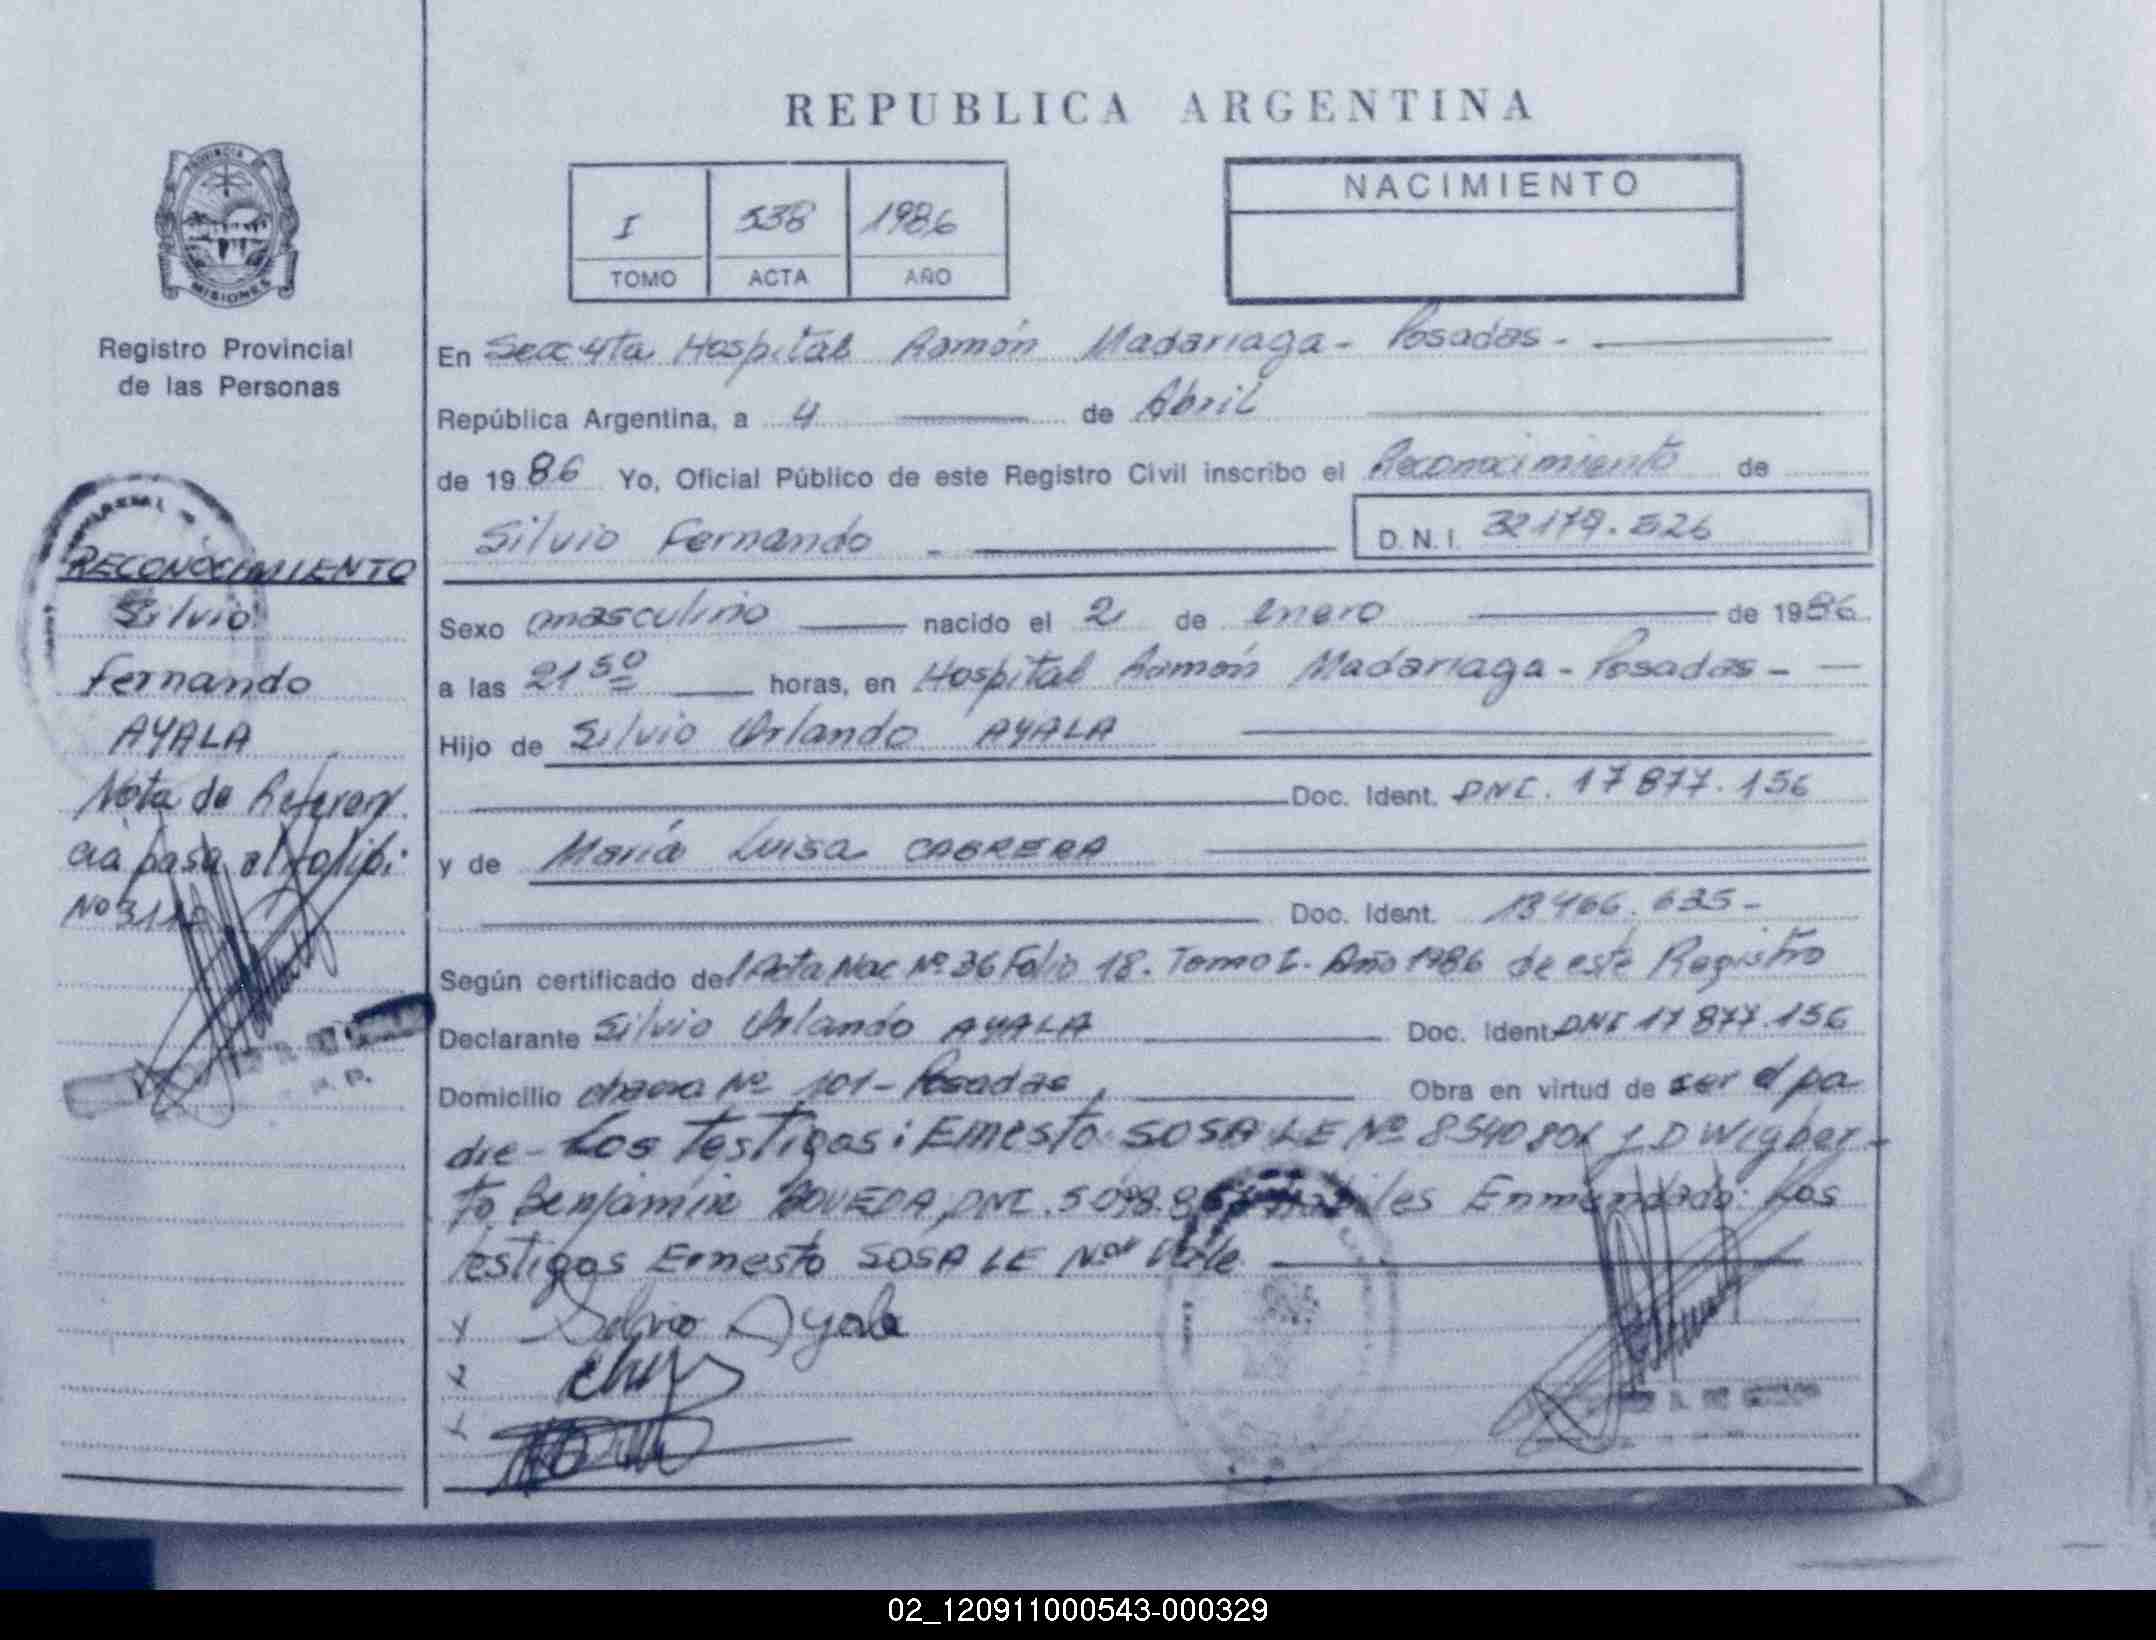 REPUBLICA ARGENTINA
PROVINCIA DE
MISIONES
Registro Provincial
de las Personas
I 538 1986
TOMO ACTA AÑO
NACIMIENTO
En Secc 4ta Hospital Ramón Madariaga - Posadas -
República Argentina, a 4 de Abril
de 1986 Yo, Oficial Público de este Registro Civil inscribo el Reconocimiento de
Silvio Fernando -
D.N.I. 32179.526
Sexo masculino nacido el 2 de enero de 1986
a las 21 50 horas, en Hospital Ramón Madariaga - Posadas -
Hijo de Silvio Orlando AYALA
Doc. Ident. DNI. 17 877.156
y de María Luisa CABRERA
Doc. Ident. 13466.635-
Según certificado del Acta Nac Nº 36 Folio 18. Tomo I. Año 1986 de este Registro
Declarante Silvio Orlando AYALA Doc. Ident. DNI 17 877.156
Domicilio chacra Nº 101 - Posadas, Obra en virtud de ser el pa
dre - Los Testigos: Ernesto SOSA LE Nº 8540801 y D Wigber-
to Benjamin BOVEDA, DNI. 5.098. Enmendado: Los
testigos Ernesto SOSA LE Nº Vale
x Silvio Ayala
x
x
RECONOCIMIENTO
Silvio
Fernando
AYALA
Nota de Referen
cia pasa al folibi:
Nº
02_120911000543-000329